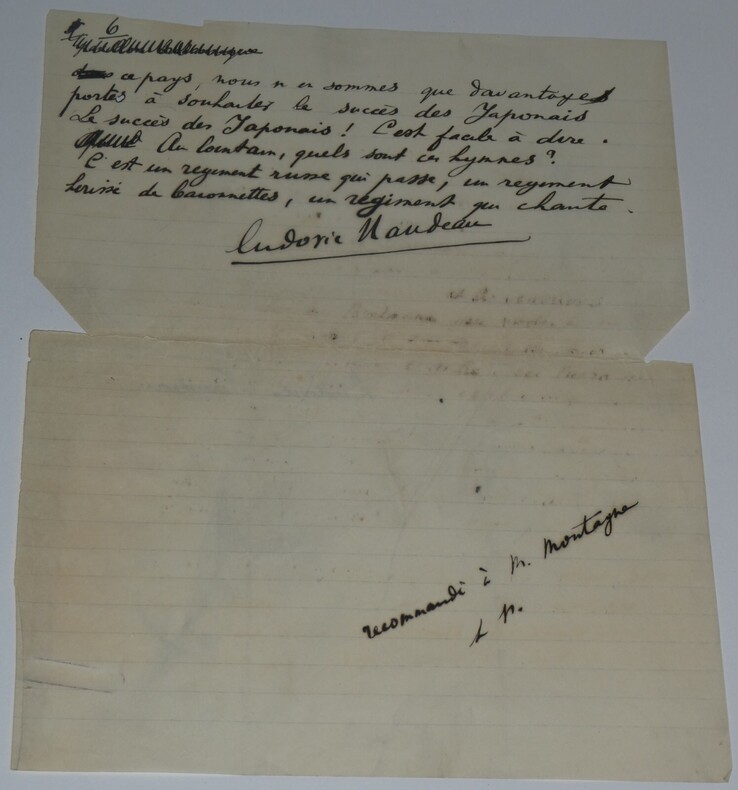 6
ce pays, nous n'en sommes que davantage
portés à souhaiter le succès des Japonais
Le succès des Japonais ! C'est facile à dire.
Au lointain, quels sont ces hymnes ?
C'est un régiment russe qui passe, un régiment
hérissé de baïonnettes, un régiment qui chante.
Ludovic Naudeau
recommandé à M. Montagne
L N.